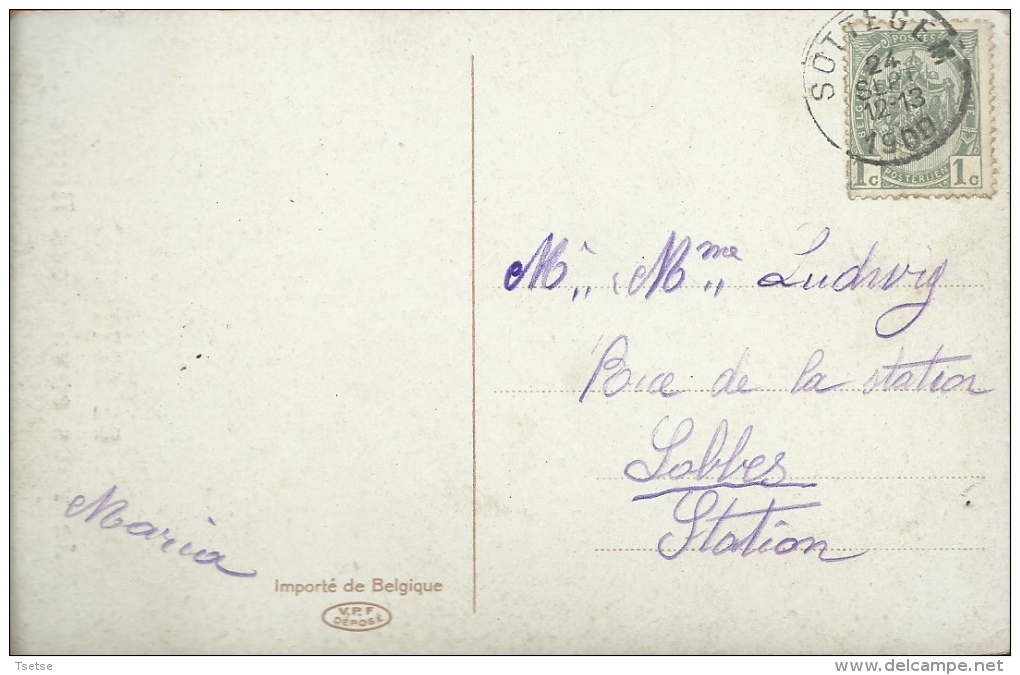 SOTTEGEM
24
SEPT
12-13
1909
POSTES
BELGIQUE
1 C
POSTERIJEN
1 C
Mr „ Mme „ Ludwig
Rue de la station
Lobbes
Station
Maria
Importé de Belgique
V.P.F
DÉPOSÉ
Tsetse
delcampe.net